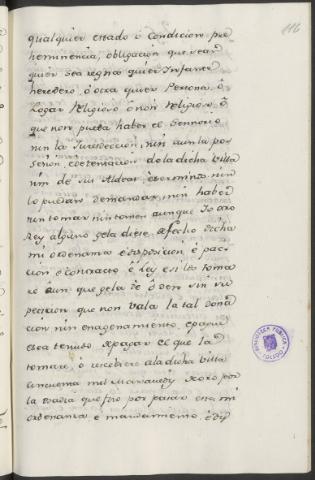 116
qualquier estado ó Condicion, pre
heminencia, obligacion que sean
quier sea regno quier Infante
heredero, ó otra quier Persona ó
Logar religioso ó non religioso, ó
que non pueda haber el Sennorio
nin la Jurediccion, nin aun la pos
sesion, de la dicha Villa
nin de sus Aldeas é terminos nin
lo puedan demandar, nin haber
nin tomar nin tomen aunque Yo otro
Rey alguno gela diere á fecho dicha
mi ordenanza é disposicion é pac
cion é contracto é Ley esi les toma
re aun que gela dé ó den sin su
peticion que non vala la tal dona
cion nin enagenamiento, é que
sea tenudo á pagar el que la
tomare, ó recibiere á la dicha Villa
cincuenta mil Maravedis de oro por
la osadia que fizo por pasar esta mi
ordenanza é mandamiento, é
BIBLIOTECA PUBLICA
TOLEDO